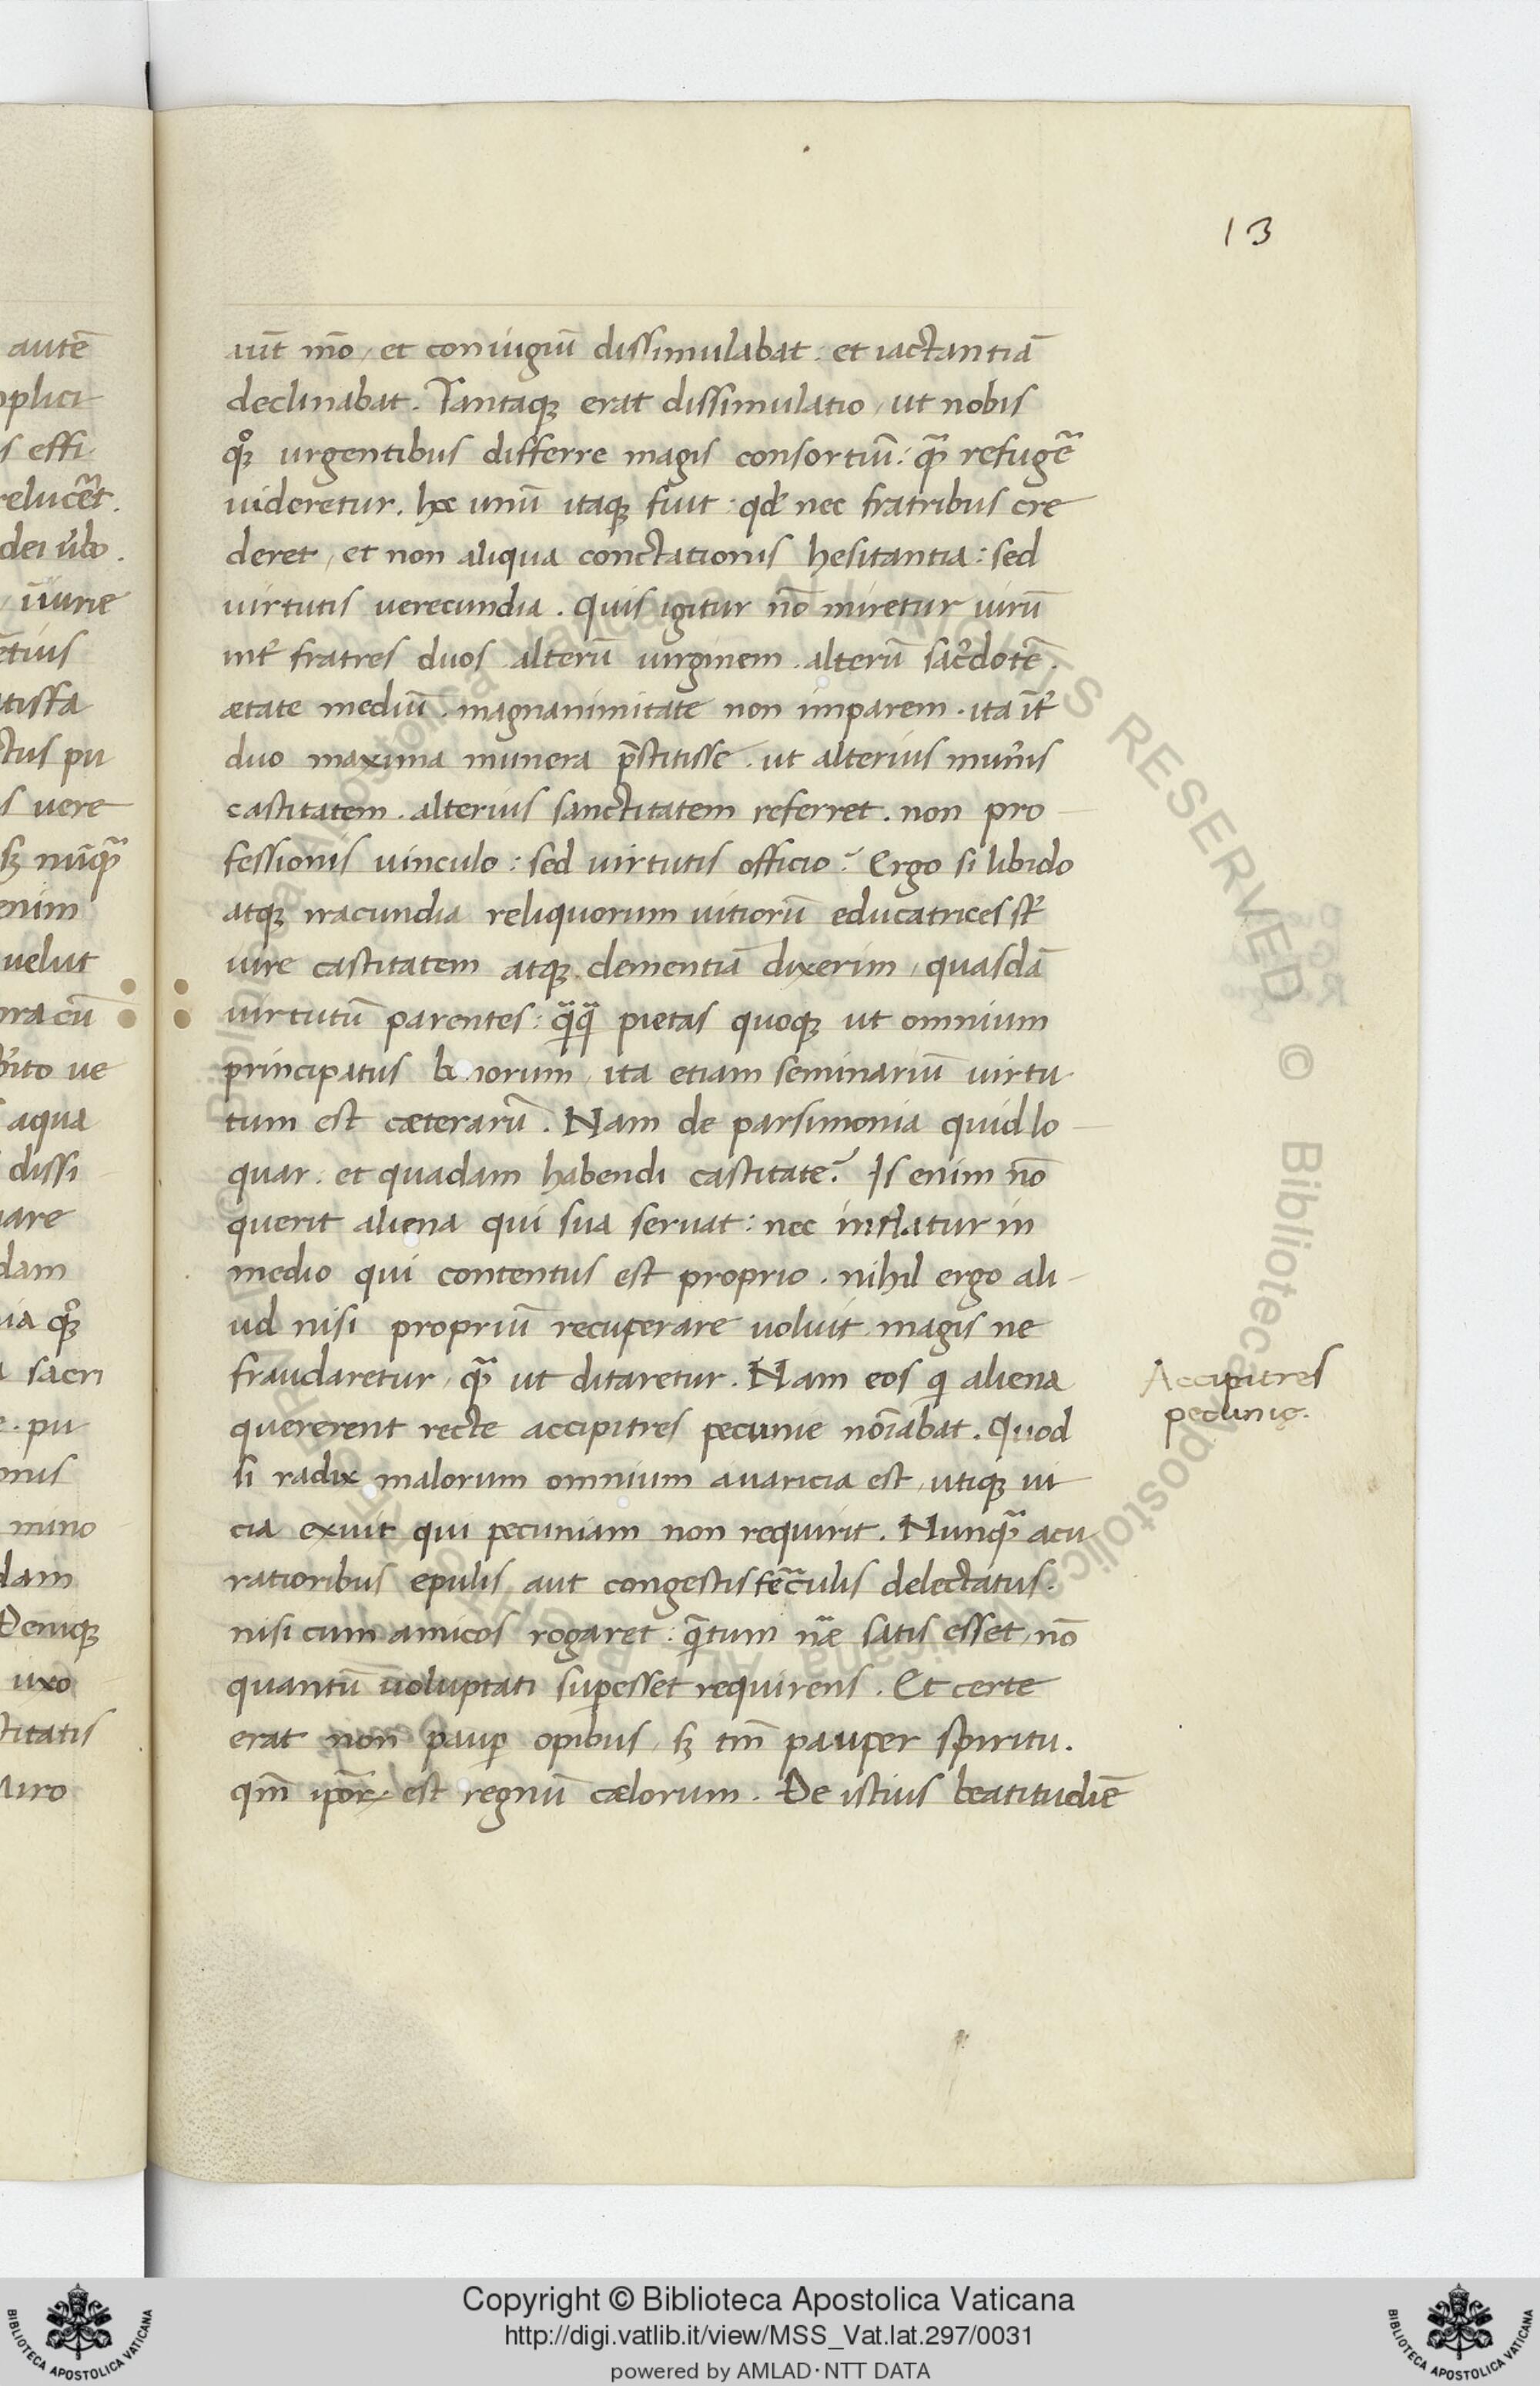 13
autē
plici
s effi
relucēt.
dei ubo.
iurie
ētius
tisfa
ctus pu
s uere
nūq̄
enim
uelut
ora cū
ito ue
aqua
dissi
are
dam
ia
sacri
pu
onis
mino
dam
Deniq;
uxo
titatis
Miro
uit mō, et coniugiū dissimulabat: et iactantiā
declinabat. Tantaq; erat dissimulatio, ut nobis
qꝫ urgentibus differre magis consortiū: q̄ refugē
uideretur. hoc unū itaq; fuit: qd nec fratribus cre
deret, et non aliqua conctationis hesitantia: sed
uirtutis uerecundia. Quis igitur nō miretur uirū
int fratres duos alterū uirginem. alterū sacdotē.
ætate mediū. magnanimitate non imparem. ita it
duo maxima munera p̄stitisse. ut alterius munis
castitatem. alterius sanctitatem referret. non pro
fessionis uinculo: sed uirtutis officio? Ergo si libido
atq; iracundia reliquorum uitiorū educatrices st
iure castitatem atq; clementiā dixerim, quasdā
uirtutū parentes: q̄q̄ pietas quoq; ut omnium
principatus bonorum, ita etiam seminariū uirtu
tum est cæterarū. Nam de parsimonia quid lo
quar. et quadam habendi castitate? Is enim nō
querit aliena qui sua seruat: nec inflatur in
medio qui contentus est proprio. nihil ergo ali
ud nisi propriū recuperare uoluit magis ne
fraudaretur, q̄ ut ditaretur. Nam eos q aliena
quererent recte accipitres pecunie noiabat. Quod
si radix malorum omnium auaricia est, utiq; ui
cia exuit qui pecuniam non requirit. Nunq̄ acu
ratioribus epulis aut congestis feculis delectatus.
nisi cum amicos rogaret: q̄tum nāe satis esset, nō
quantū uoluptati supesset requirens. Et certe
erat non paup opibus, sꝫ tm̄ pauper spiritu.
qm̄ ipoꝝ est regnū cælorum. De istius beatitudiē
Accipitres
pecunię.
Copyright © Biblioteca Apostolica Vaticana
http://digi.vatlib.it/view/MSS_Vat.lat.297/0031
powered by AMLAD·NTT DATA
BIBLIOTECA APOSTOLICA VATICANA
BIBLIOTECA APOSTOLICA VATICANA